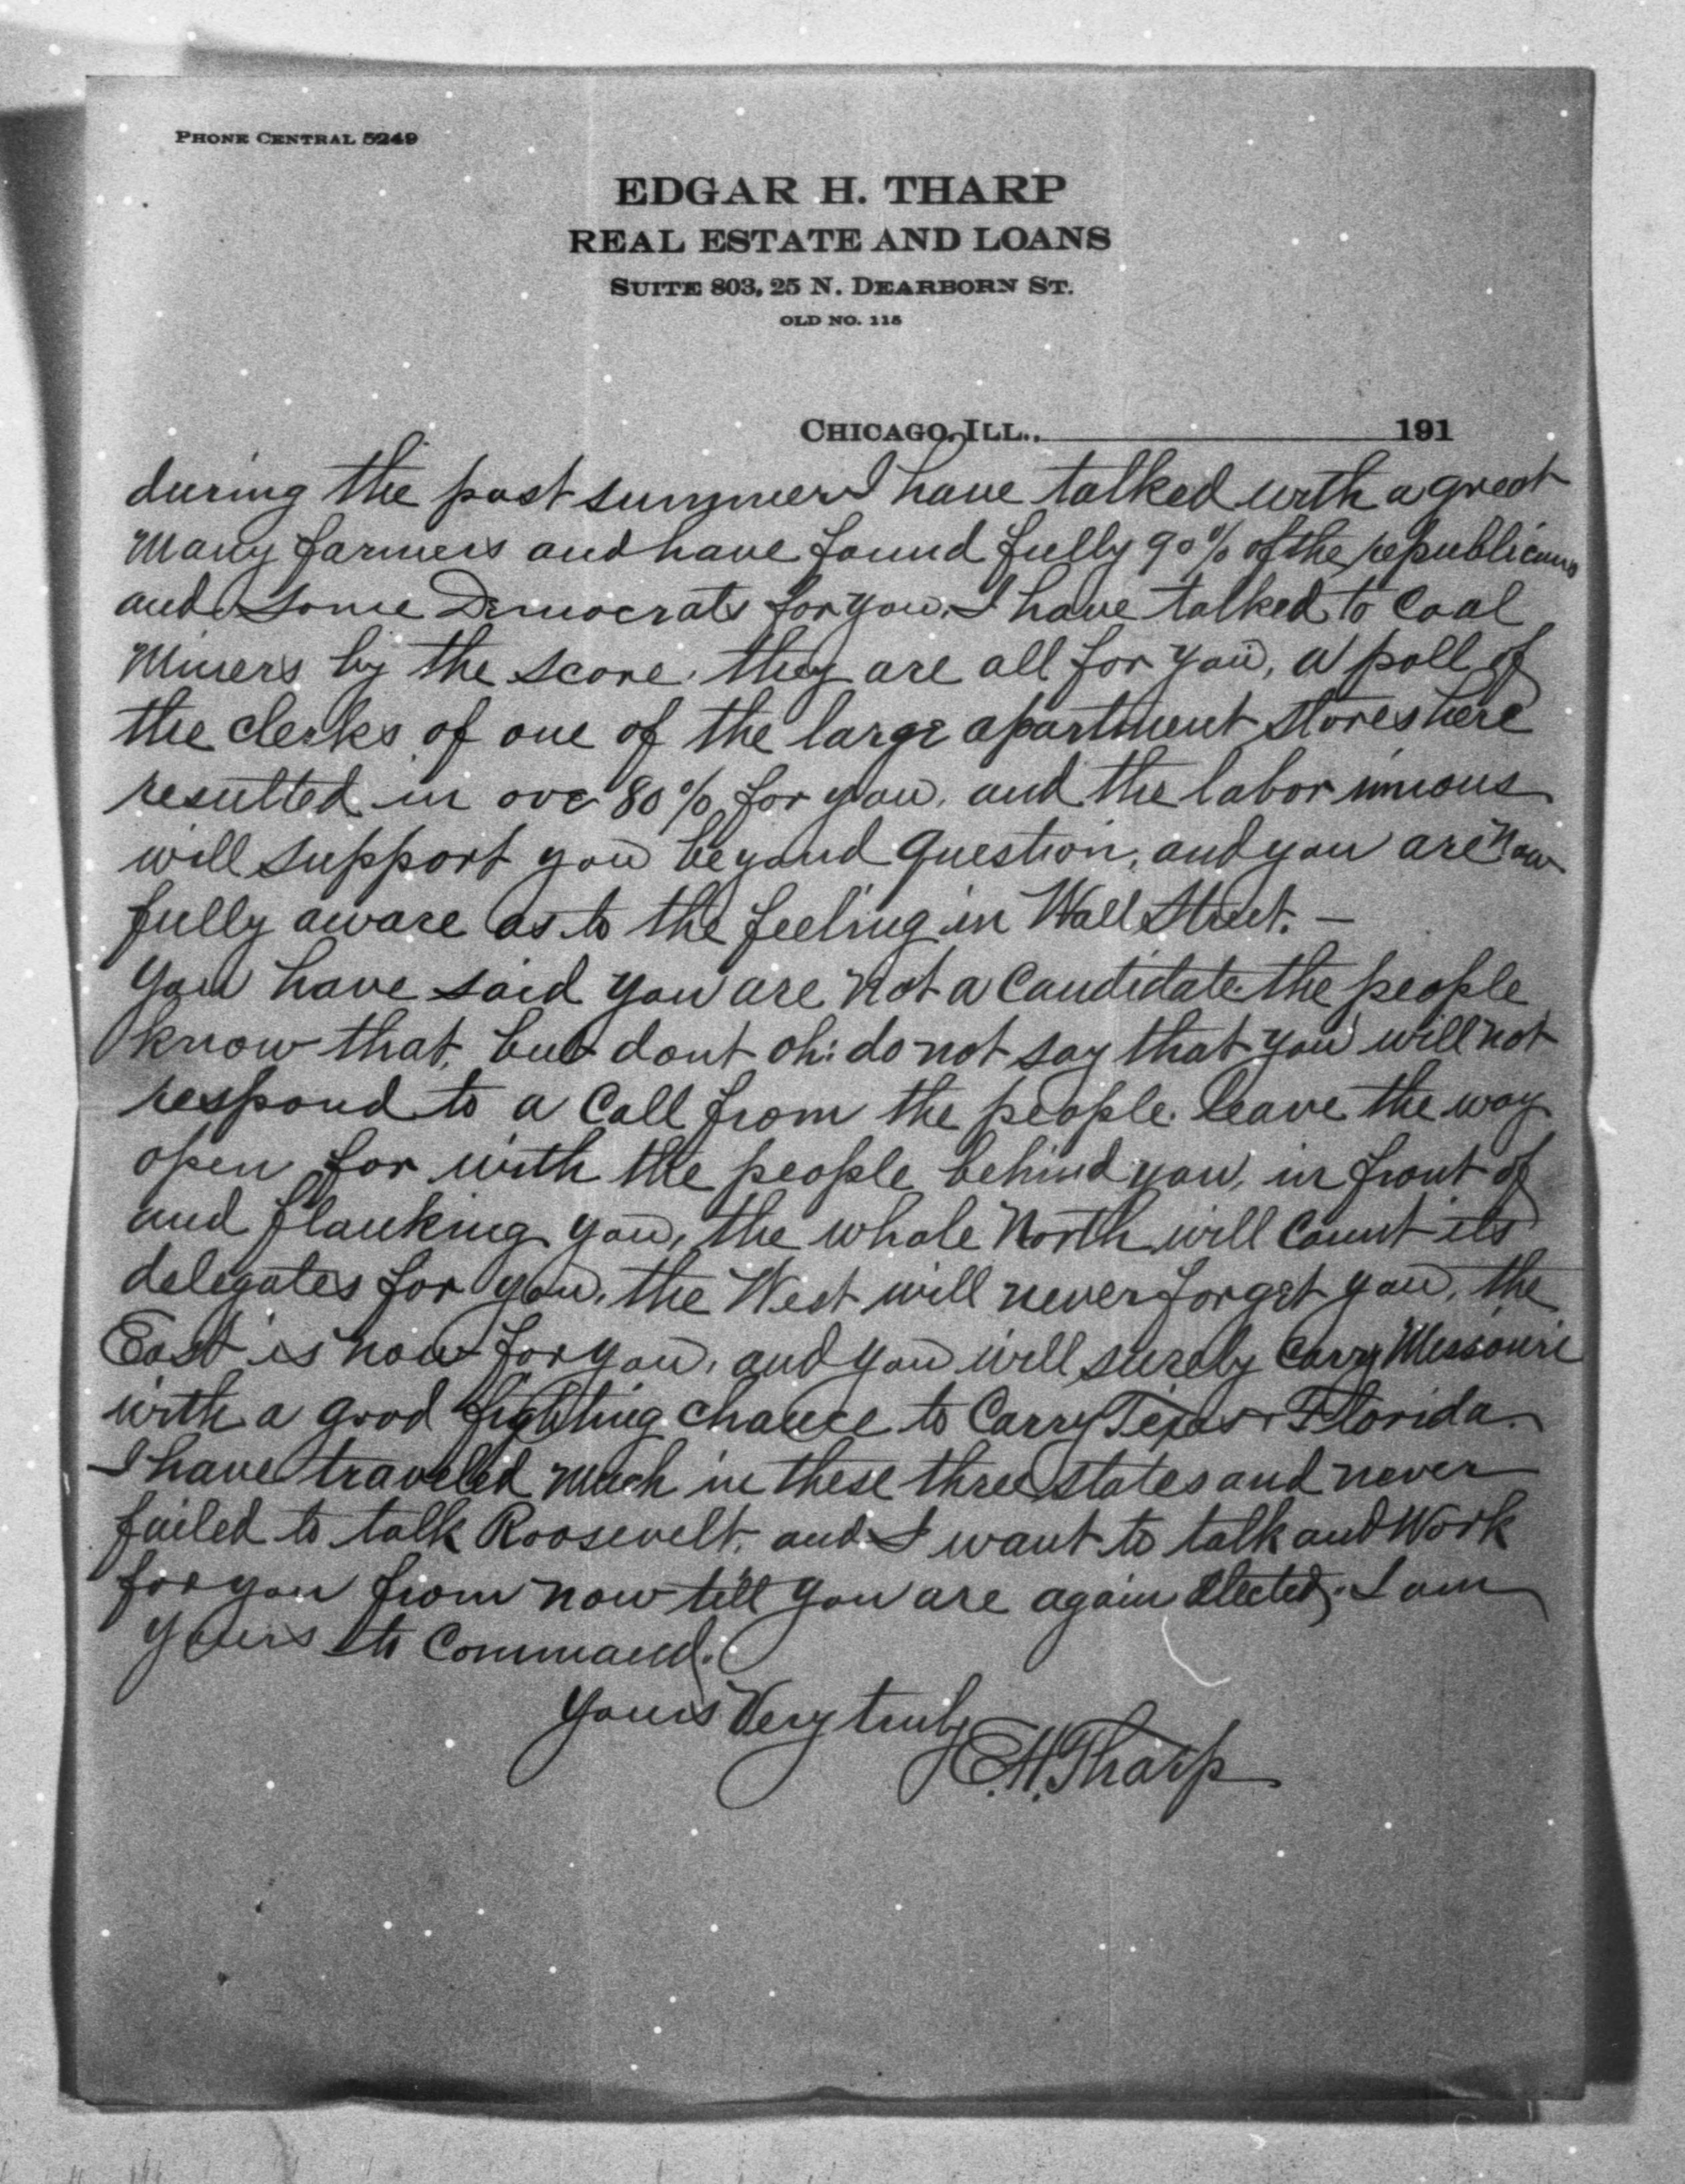 PHONE CENTRAL 5249
EDGAR H. THARP
REAL ESTATE AND LOANS
SUITE 803, 25 N. DEARBORN ST.
OLD NO. 115
CHICAGO, ILL., 191
during the past summer I have talked with a great
many farmers and have found fully 90% of the republicans
and some Democrats for you. I have talked to Coal
Miners by the score. they are all for you, a poll of
the clerks of one of the large apartment stores here
resulted in ove 80% for you, and the labor unions
will support you beyond question, and you are now
fully aware as to the feeling in Wall Street. —
You have said you are not a Candidate the people
know that, but dont oh: do not say that you will not
respond to a Call from the people. leave the way
open for with the people behind you, in front of
and flanking you, the whole North will Count its
delegates for you, the West will never forget you, the
East is now for you, and you will surely Carry Missouri
with a good fighting chance to Carry Texas + Florida.
I have traveled much in these three states and never
failed to talk Roosevelt, and I want to talk and Work
for you from now till you are again elected. I am
Yours to Command.
Yours Very truly
E.H. Tharp